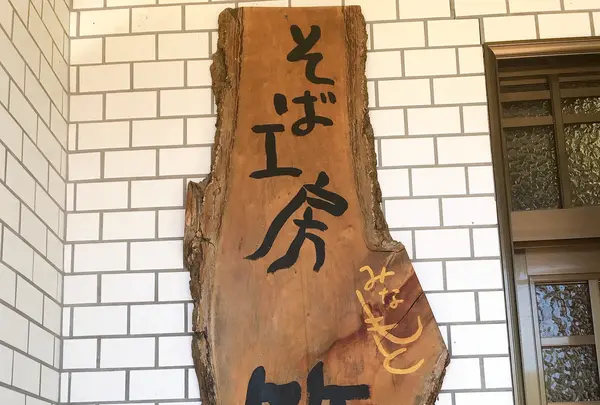 そば工房
みなもと